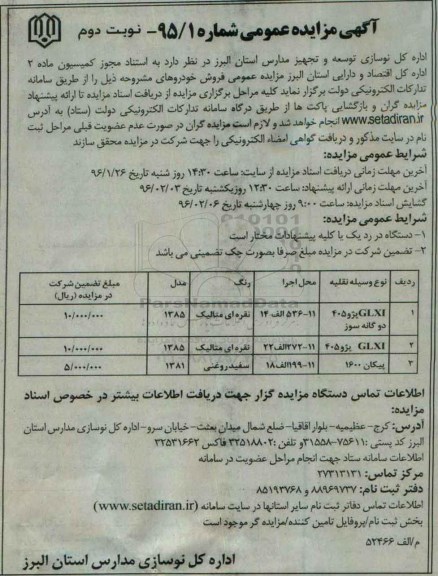 آگهی مزایده عمومی شماره ۹۵/۱- نوبت دوم
اداره کل نوسازی توسعه و تجهیز مدارس استان البرز در نظر دارد به استناد مجوز کمیسیون ماده ۲
اداره کل اقتصاد و دارایی استان البرز مزایده عمومی فروش خودروهای مشروحه ذیل را از طریق سامانه
تدارکات الکترونیکی دولت برگزار نماید کلیه مراحل برگزاری مزایده از دریافت اسناد مزایده تا ارائه پیشنهاد
مزایده گران و بازگشایی پاکت ها از طریق درگاه سامانه تدارکات الکترونیکی دولت (ستاد) به آدرس
www.setadiran.ir انجام خواهد شد و لازم است مزایده گران در صورت عدم عضویت قبلی مراحل ثبت
نام در سایت مذکور و دریافت گواهی امضاء الکترونیکی را جهت شرکت در مزایده محقق سازند
شرایط عمومی مزایده:
آخرین مهلت زمانی دریافت اسناد مزایده از سایت: ساعت ۱۴:۳۰ روز شنبه تاریخ ۹۶/۱/۲۶
آخرین مهلت زمانی ارائه پیشنهاد: ساعت ۱۲:۳۰ روزیکشنبه تاریخ ۹۶/۰۲/۰۳
گشایش اسناد مزایده: ساعت ۹:۰۰ روز چهارشنبه تاریخ ۹۶/۰۲/۰۶
شرایط عمومی مزایده:
۱- دستگاه در رد یک یا کلیه پیشنهادات مختار است
۲- تضمین شرکت در مزایده مبلغ صرفا بصورت چک تضمینی می باشد
ردیف نوع وسیله نقلیه محل اجرا رنگ مدل مبلغ تضمین شرکت در مزایده (ریال)
۱ GLXI پژو۴۰۵ دو گانه سوز ۱۱-۵۳۶ الف ۱۴ نقره ای متالیک ۱۳۸۵ ۱۰/۰۰۰/۰۰۰
۲ GLXI پژو ۴۰۵ ۱۱-۲۷۲الف۲۲ نقره ای متالیک ۱۳۸۵ ۱۰/۰۰۰/۰۰۰
۳ پیکان ۱۶۰۰ ۱۱-۱۹۹الف۱۸ سفید روغنی ۱۳۸۱ ۵/۰۰۰/۰۰۰
ParsNamadData
اطلاعات تماس دستگاه مزایده گزار جهت دریافت اطلاعات بیشتر در خصوص اسناد
مزایده:
آدرس: کرج- عظیمیه- بلوار اقاقیا- ضلع شمال میدان بعثت- خیابان سرو- اداره کل نوسازی مدارس استان
البرز کد پستی: ۷۵۶۱۱-۳۱۵۵۸ و تلفن :۳۲۵۱۸۸۰۲ فاکس ۳۲۵۳۱۶۶۲
اطلاعات سامانه ستاد جهت انجام مراحل عضویت در سامانه
مرکز تماس: ۲۷۳۱۳۱۳۱
دفتر ثبت نام: ۸۸۹۶۹۷۳۷ و ۸۵۱۹۳۷۶۸
اطلاعات تماس دفاتر ثبت نام سایر استانها در سایت سامانه (www.setadiran.ir)
بخش ثبت نام/پروفایل تامین کننده/مزایده گر موجود است
م/الف ۵۲۴۶۶
اداره کل نوسازی مدارس استان البرز